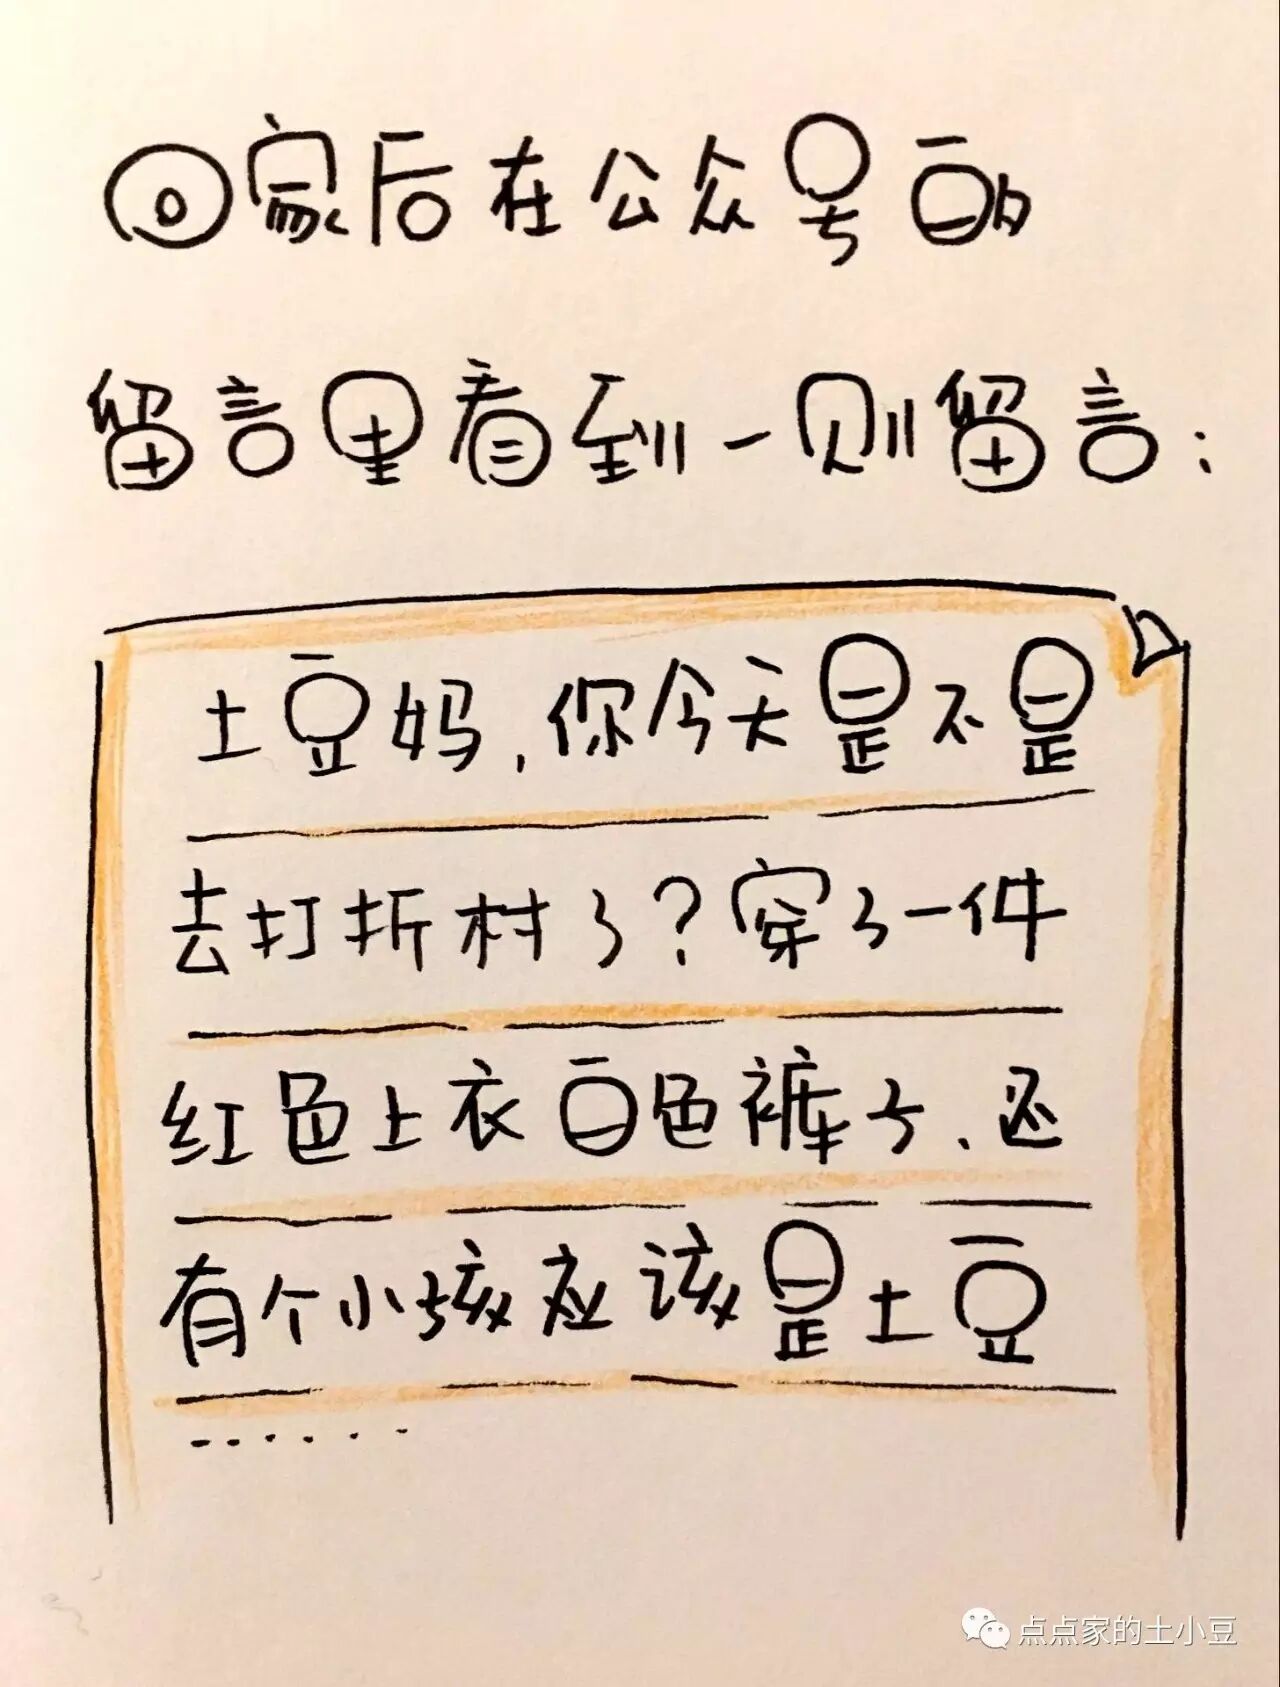 回家后在公众号的
留言里看到一则留言：
土豆妈，你今天是不是
去打折村了？穿了一件
红色上衣白色裤子、还
有个小孩应该是土豆
......
点点家的土小豆